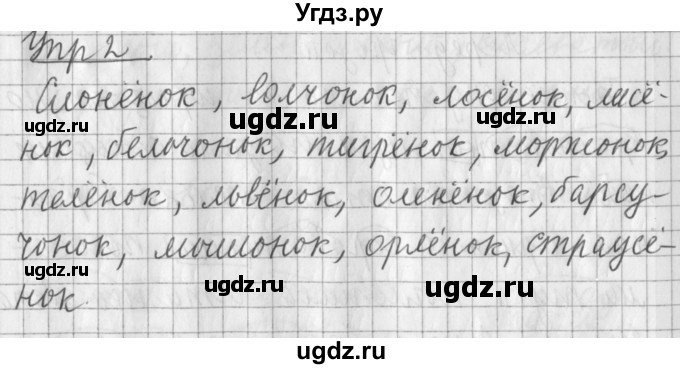 Угдз.ру
Упр 2
Слонёнок, волчонок, лосёнок, лисё-
ugdz.ru ugdz.ru ugdz.ru
нок, бельчонок, тигрёнок, моржонок,
телёнок, львёнок, оленёнок, барсу-
чонок, мышонок, орлёнок, страусё-
ugdz.ru ugdz.ru ugdz.ru
нок.
ugdz.ru